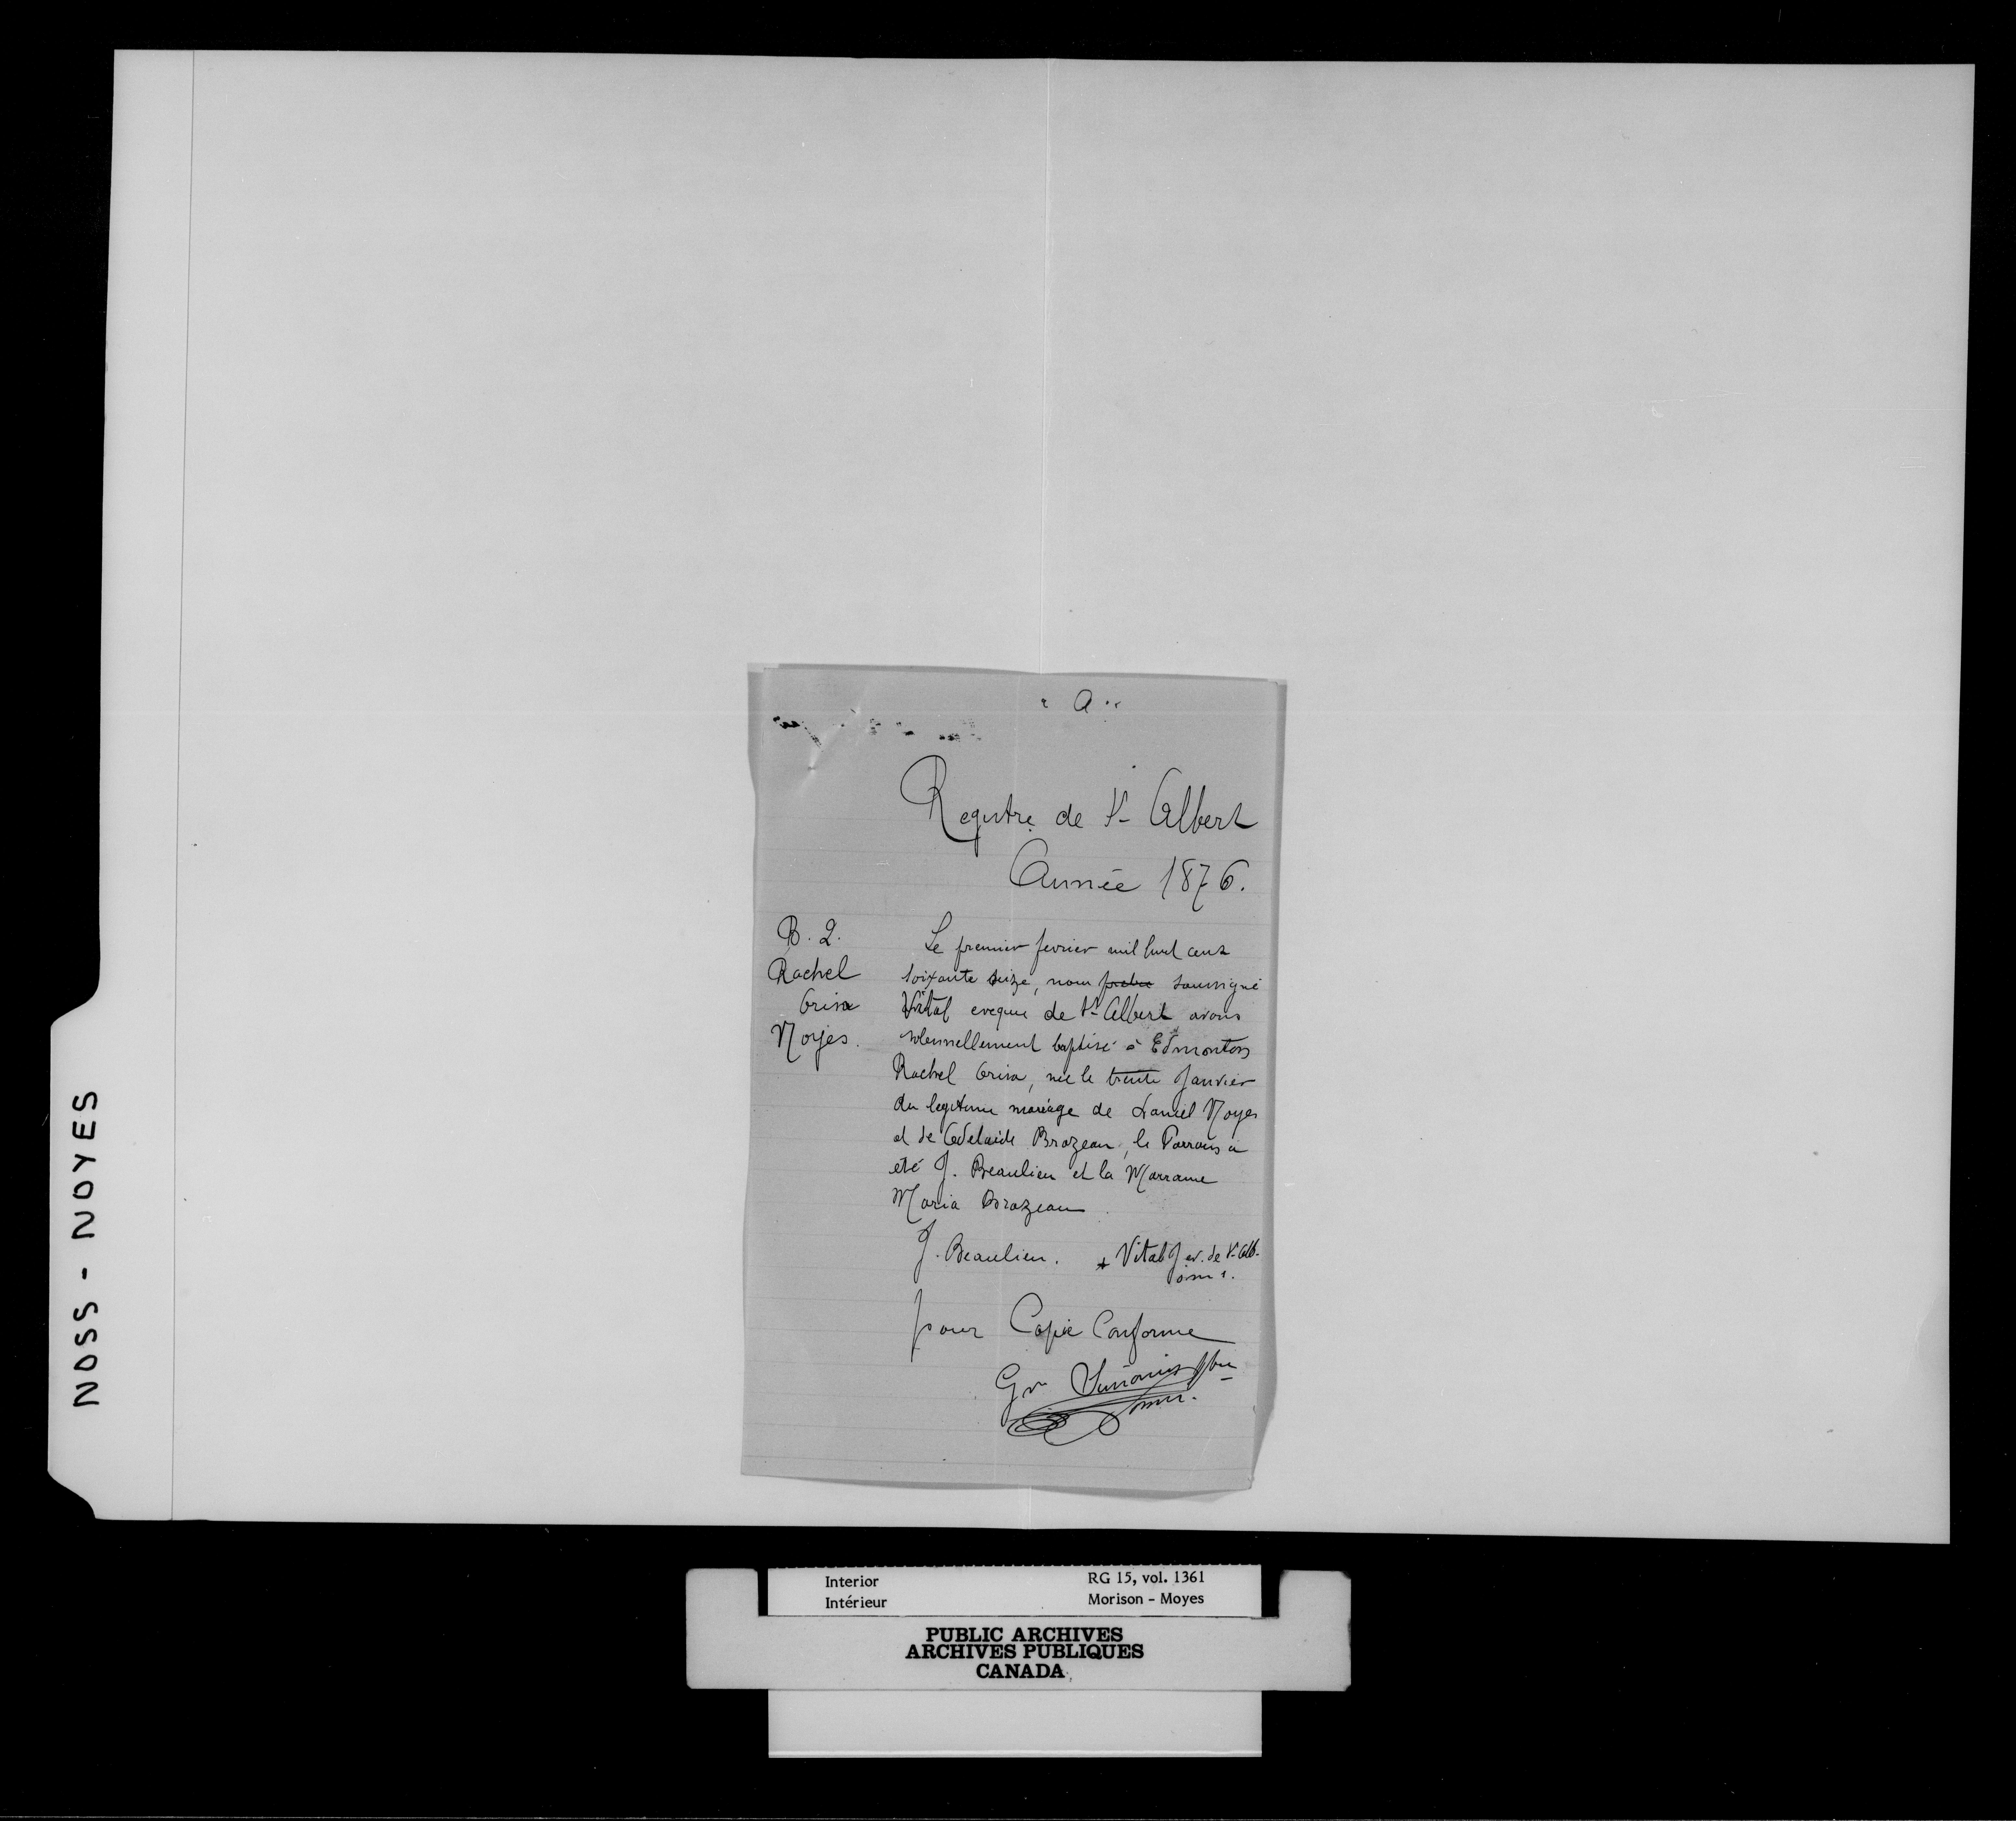 NOSS - NOYES
" A "
Registre de St Albert
Année 1876.
B. 2.
Rachel
Noyes.
Le premier fevrier mil huit cent
soixante seize, nous soussigné
Vital eveque de St Albert avons
solennellement baptisé à Edmonton
Rachel née le trente Janvier
du legitime mariage de Daniel Noyes
et de Adelaide Brazeau, le Parrain a
été J. Beaulieu et la Marraine
Maria Brazeau
J. Beaulieu. + Vital J ev. de St Alb.
o.m.i.
pour Copie Conforme
ptre
omi.
Interior
Intérieur
RG 15, vol. 1361
Morison - Moyes
PUBLIC ARCHIVES
ARCHIVES PUBLIQUES
CANADA